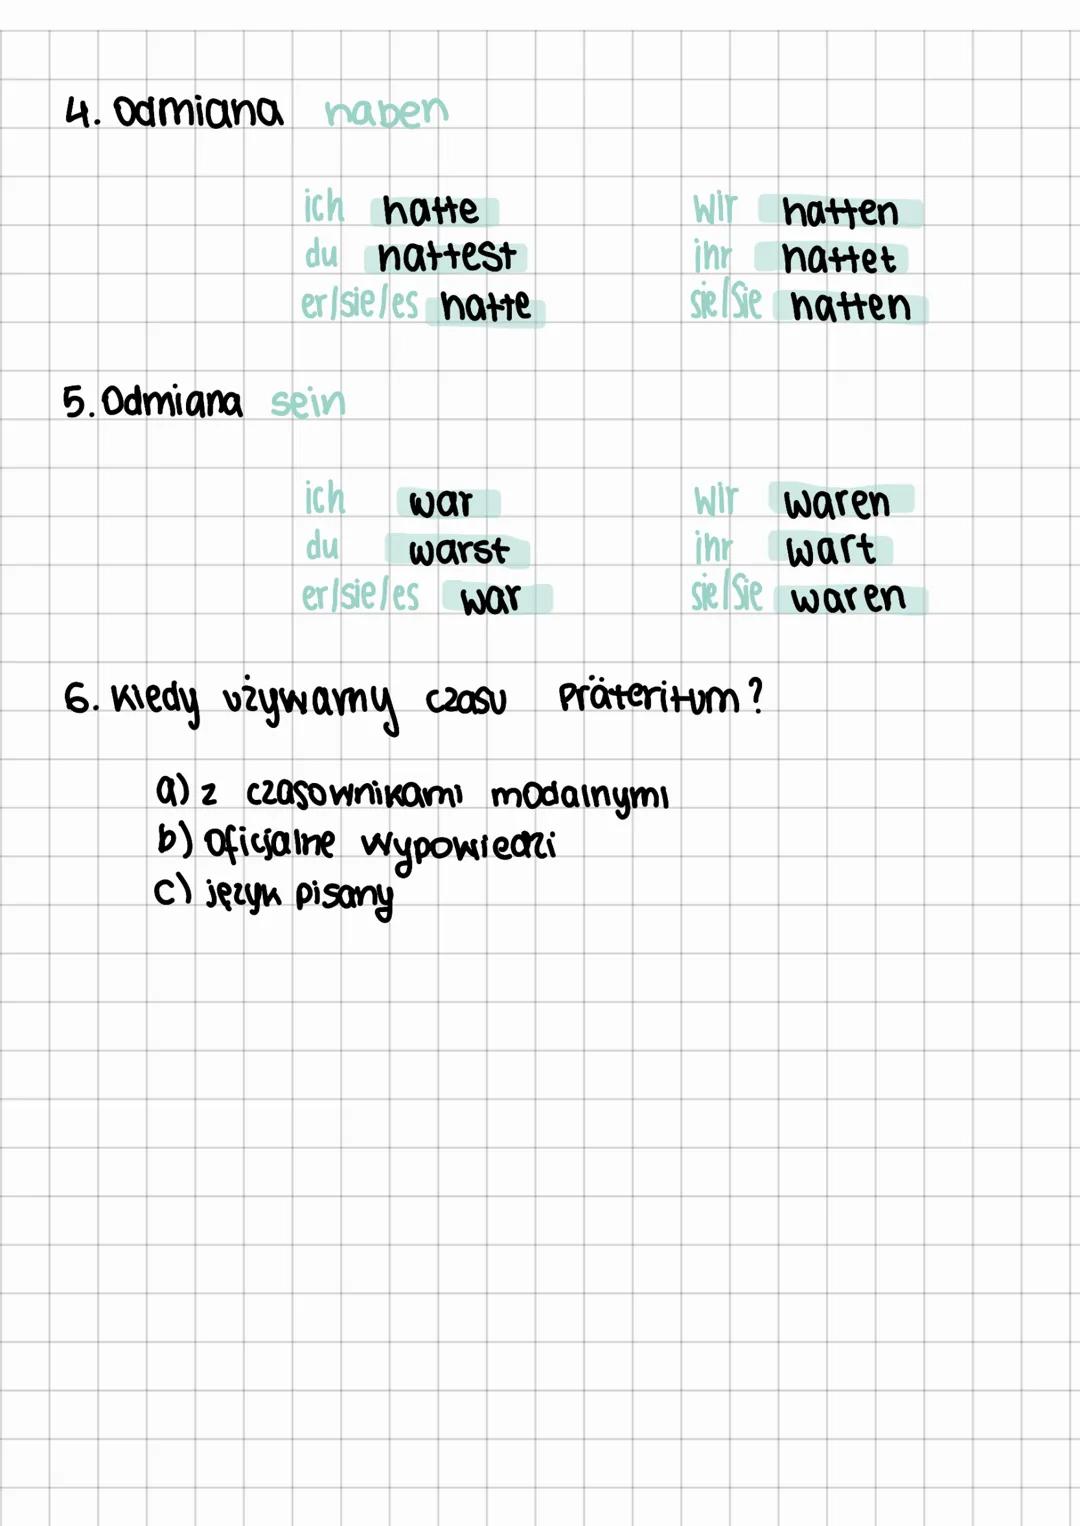 4. Odmiana haben
ich hatte wir hatten
du hattest ihr hattet
er/sie/es hatte sie/Sie hatten
5. Odmiana sein
ich war wir waren
du warst ihr wart
er/sie/es war sie/Sie waren
6. Kiedy używamy czasu Präteritum?
a) z czasownikami modalnymi
b) oficjalne wypowiedzi
c) język pisany